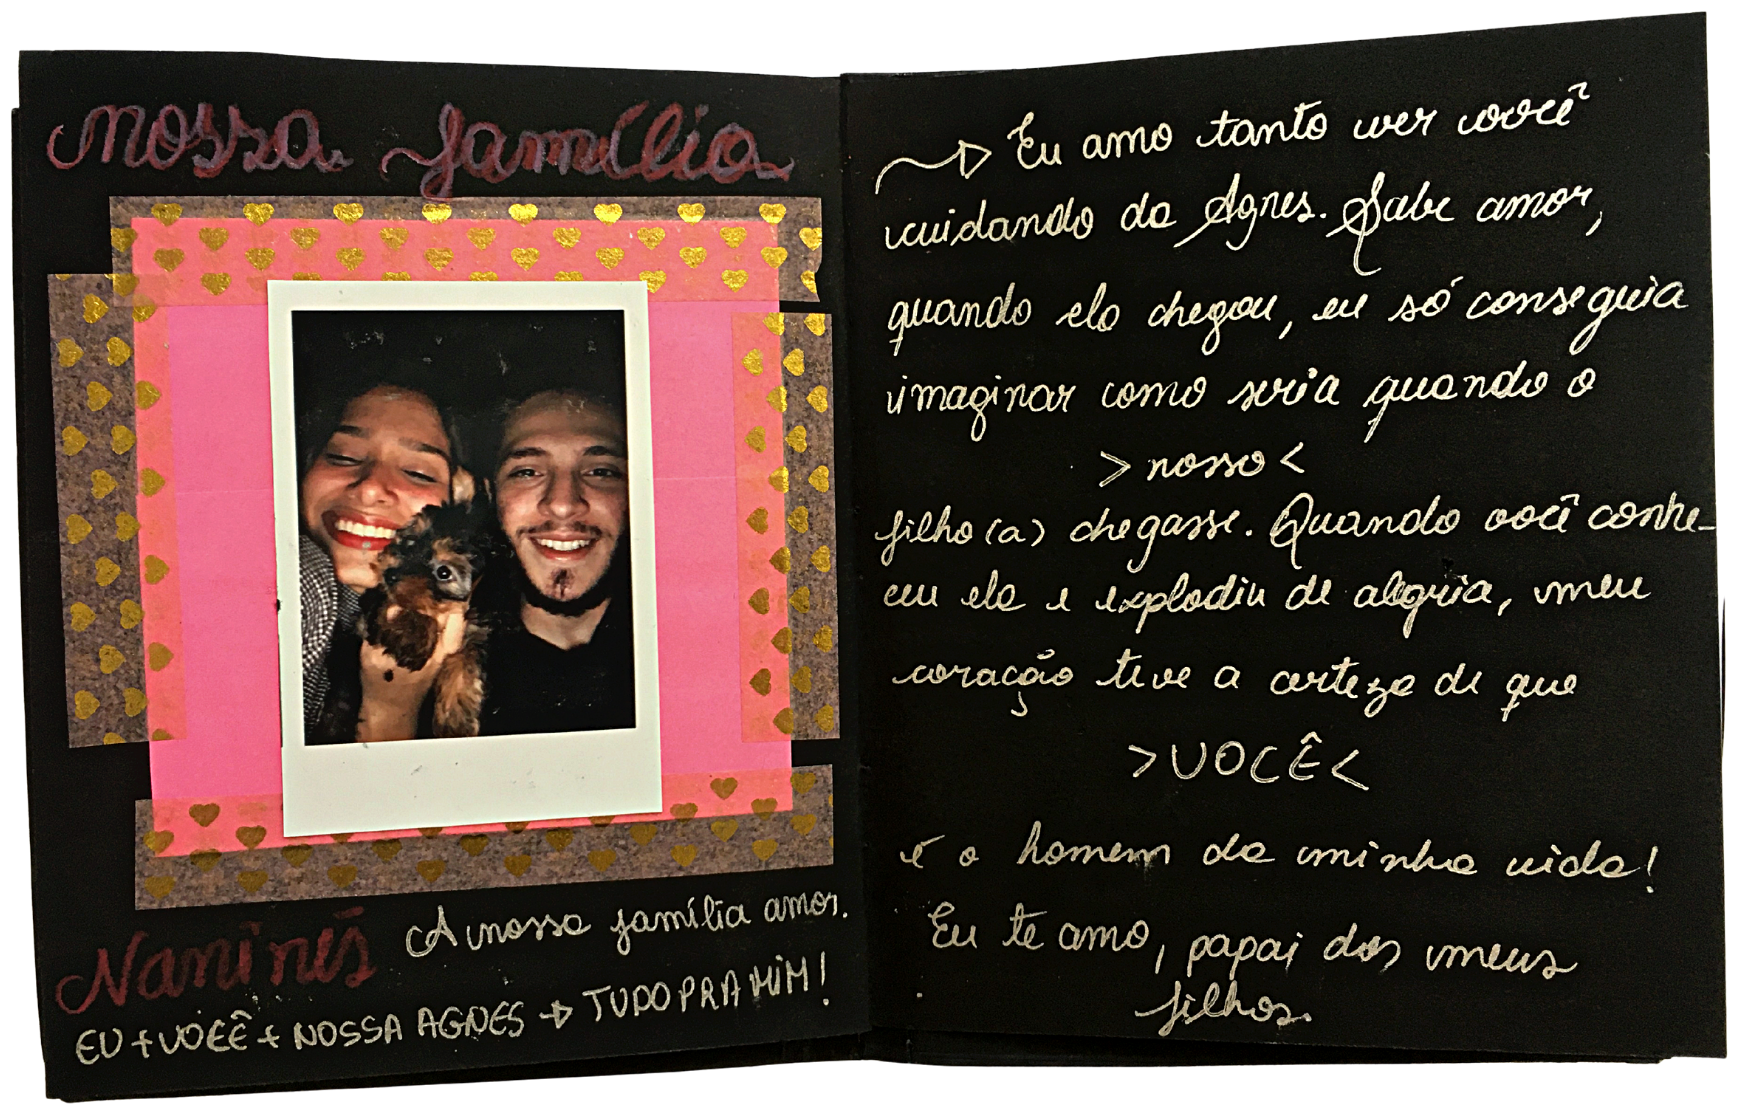 nossa família
Naninés A nossa família amor.
EU + VOCÊ + NOSSA AGNES → TUDO PRA MIM!
→ Eu amo tanto ver você
cuidando da Agnes. Sabe amor,
quando ela chegou, eu só conseguia
imaginar como seria quando o
> nosso <
filho(a) chegasse. Quando você conhe-
ceu ela e explodiu de alegria, meu
coração teve a certeza de que
> VOCÊ <
é o homem da minha vida!
Eu te amo, papai dos meus
filhos.